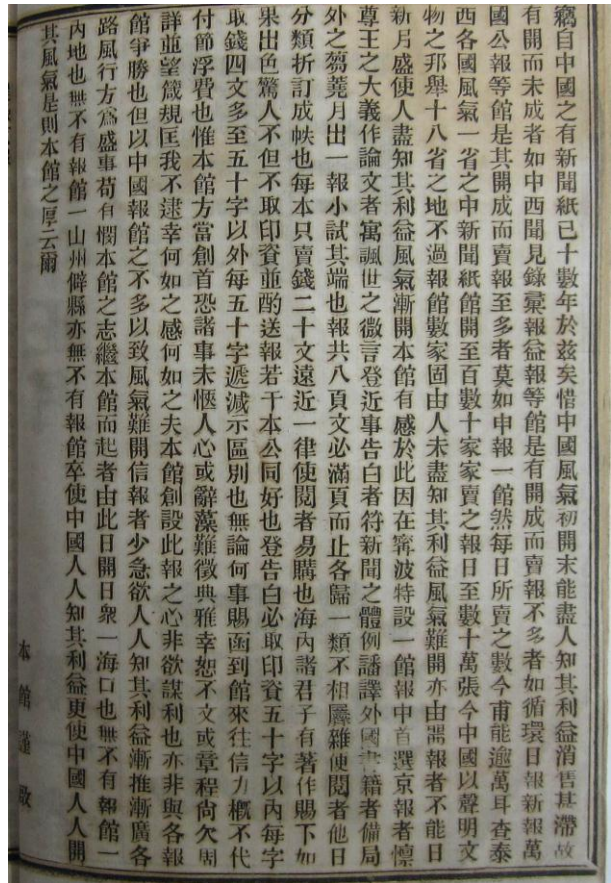 竊自中國之有新聞紙已十數年於茲矣惜中國風氣初開未能盡人知其利益消售甚滯故
有開而未成者如中西聞見錄彙報益報等館是有開成而賣報不多者如循環日報新報萬
國公報等館是其開成而賣報至多者莫如申報一館然每日所賣之數今甫能逾萬耳查泰
西各國風氣一省之中新聞紙館開至百數十家家賣之報日至數十萬張今中國以聲明文
物之邦舉十八省之地不過報館數家固由人未盡知其利益風氣難開亦由
報者不能日
新月盛使人盡知其利益風氣漸開本館有感於此因在寗波特設一館報中首選京報者懍
尊王之大義作論文者寓諷世之微言登近事告白者符新聞之體例譒譯外國書籍者備局
外之芻蕘月出一報小試其端也報共八頁文必滿頁而止各歸一類不相羼雜使閱者他日
分類折訂成帙也每本只賣錢二十文遠近一律使閱者易購也海內諸君子有著作賜下如
果出色驚人不但不取印資並酌送報若干本公同好也登告白必取印資五十字以內每字
取錢四文多至五十字以外每五十字遞減示區別也無論何事賜函到館來往信力概不代
付節浮費也惟本館方當創首恐諸事未愜人心或辭藻難徵典雅幸恕不文或章程尙欠周
詳並望箴規匡我不逮幸何如之感何如之夫本館創設此報之心非欲謀利也亦非與各報
館爭勝也但以中國報館之不多以致風氣難開信報者少急欲人人知其利益漸推漸廣各
路風行方爲盛事苟有憫本館之志繼本館而起者由此日開日衆一海口也無不有報館一
內地也無不有報館一山州僻縣亦無不有報館卒使中國人人知其利益更使中國人人開
其風氣是則本館之厚云爾
本館謹啟